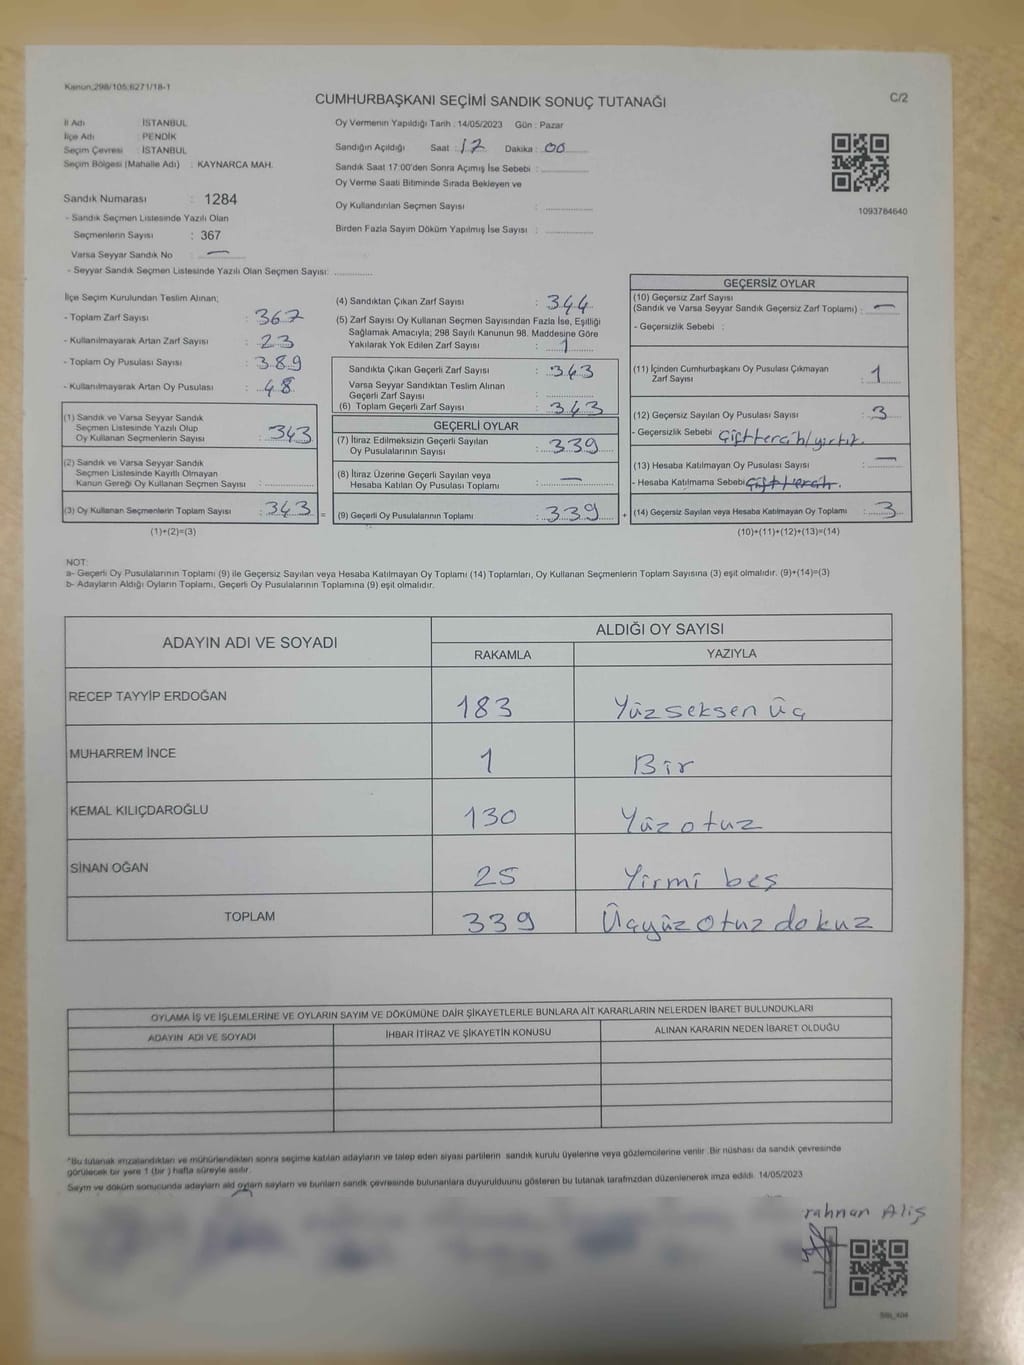 Kanun:298/105;6271/18-1
CUMHURBAŞKANI SEÇİMİ SANDIK SONUÇ TUTANAĞI
C/2
İl Adı : İSTANBUL
İlçe Adı : PENDİK
Seçim Çevresi : İSTANBUL
Seçim Bölgesi (Mahalle Adı) : KAYNARCA MAH.
Sandık Numarası : 1284
- Sandık Seçmen Listesinde Yazılı Olan
Seçmenlerin Sayısı : 367
Varsa Seyyar Sandık No : —
- Seyyar Sandık Seçmen Listesinde Yazılı Olan Seçmen Sayısı: ............
Oy Vermenin Yapıldığı Tarih : 14/05/2023 Gün : Pazar
Sandığın Açıldığı Saat : 17 Dakika : 00
Sandık Saat 17:00'den Sonra Açımış İse Sebebi : ............
Oy Verme Saati Bitiminde Sırada Bekleyen ve
Oy Kullandırılan Seçmen Sayısı : ............
Birden Fazla Sayım Döküm Yapılmış İse Sayısı : ............
1093784640
İlçe Seçim Kurulundan Teslim Alınan;
- Toplam Zarf Sayısı : 367
- Kullanılmayarak Artan Zarf Sayısı : 23
- Toplam Oy Pusulası Sayısı : 389
- Kullanılmayarak Artan Oy Pusulası : 48
(1) Sandık ve Varsa Seyyar Sandık
Seçmen Listesinde Yazılı Olup
Oy Kullanan Seçmenlerin Sayısı : 343
(2) Sandık ve Varsa Seyyar Sandık
Seçmen Listesinde Kayıtlı Olmayan
Kanun Gereği Oy Kullanan Seçmen Sayısı : ............
(3) Oy Kullanan Seçmenlerin Toplam Sayısı : 343 =
(1)+(2)=(3)
(4) Sandıktan Çıkan Zarf Sayısı : 344
(5) Zarf Sayısı Oy Kullanan Seçmen Sayısından Fazla İse, Eşitliği
Sağlamak Amacıyla; 298 Sayılı Kanunun 98. Maddesine Göre
Yakılarak Yok Edilen Zarf Sayısı : 1
Sandıkta Çıkan Geçerli Zarf Sayısı : 343
Varsa Seyyar Sandıktan Teslim Alınan
Geçerli Zarf Sayısı : ............
(6) Toplam Geçerli Zarf Sayısı : 343
GEÇERLİ OYLAR
(7) İtiraz Edilmeksizin Geçerli Sayılan
Oy Pusulalarının Sayısı : 339
(8) İtiraz Üzerine Geçerli Sayılan veya
Hesaba Katılan Oy Pusulası Toplamı : —
(9) Geçerli Oy Pusulalarının Toplamı : 339 +
GEÇERSİZ OYLAR
(10) Geçersiz Zarf Sayısı
(Sandık ve Varsa Seyyar Sandık Geçersiz Zarf Toplamı) : —
- Geçersizlik Sebebi :
(11) İçinden Cumhurbaşkanı Oy Pusulası Çıkmayan
Zarf Sayısı : 1
(12) Geçersiz Sayılan Oy Pusulası Sayısı : 3
- Geçersizlik Sebebi Çift tercih/yırtık.
(13) Hesaba Katılmayan Oy Pusulası Sayısı : —
- Hesaba Katılmama Sebebi Çift tercih.
(14) Geçersiz Sayılan veya Hesaba Katılmayan Oy Toplamı : 3
(10)+(11)+(12)+(13)=(14)
NOT:
a- Geçerli Oy Pusulalarının Toplamı (9) ile Geçersiz Sayılan veya Hesaba Katılmayan Oy Toplamı (14) Toplamları, Oy Kullanan Seçmenlerin Toplam Sayısına (3) eşit olmalıdır. (9)+(14)=(3)
b- Adayların Aldığı Oyların Toplamı, Geçerli Oy Pusulalarının Toplamına (9) eşit olmalıdır.
ADAYIN ADI VE SOYADI ALDIĞI OY SAYISI
RAKAMLA YAZIYLA
RECEP TAYYİP ERDOĞAN 183 Yüzseksen üç
MUHARREM İNCE 1 Bir
KEMAL KILIÇDAROĞLU 130 Yüz otuz
SİNAN OĞAN 25 Yirmi beş
TOPLAM 339 Üçyüz otuz dokuz
OYLAMA İŞ VE İŞLEMLERİNE VE OYLARIN SAYIM VE DÖKÜMÜNE DAİR ŞİKAYETLERLE BUNLARA AİT KARARLARIN NELERDEN İBARET BULUNDUKLARI
ADAYIN ADI VE SOYADI İHBAR İTİRAZ VE ŞİKAYETİN KONUSU ALINAN KARARIN NEDEN İBARET OLDUĞU
*Bu tutanak imzalandıktan ve mühürlendikten sonra seçime katılan adayların ve talep eden siyasi partilerin sandık kurulu üyelerine veya gözlemcilerine verilir .Bir nüshası da sandık çevresinde
görülecek bir yere 1 (bir ) hafta süreyle asılır.
Sayım ve döküm sonucunda adayların ald oyların sayıları ve bunların sandık çevresinde bulunanlara duyurulduunu gösteren bu tutanak tarafmzdan düzenlenerek imza edildi. 14/05/2023
rahnan Aliş